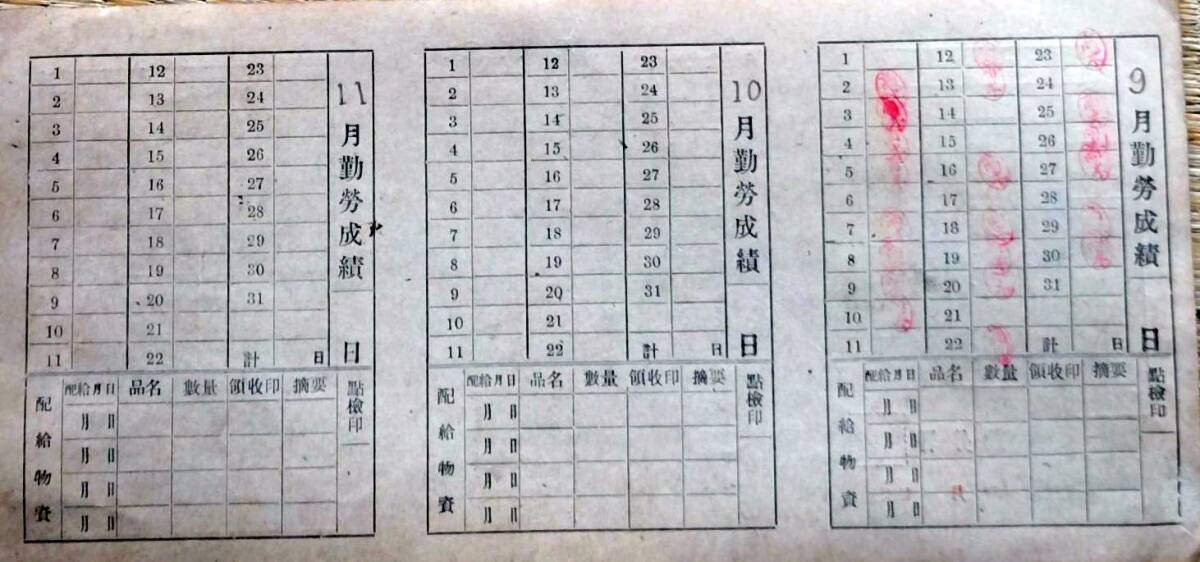 9月勤勞成績 日
1 12 23
2 13 24
3 14 25
4 15 26
5 16 27
6 17 28
7 18 29
8 19 30
9 20 31
10 21
11 22 計 日
點檢印
配給物資
配給月日 品名 數量 領收印 摘要
月 日
月 日
月 日
月 日
10月勤勞成績 日
1 12 23
2 13 24
3 14 25
4 15 26
5 16 27
6 17 28
7 18 29
8 19 30
9 20 31
10 21
11 22 計 日
點檢印
配給物資
配給月日 品名 數量 領收印 摘要
月 日
月 日
月 日
月 日
11月勤勞成績 日
1 12 23
2 13 24
3 14 25
4 15 26
5 16 27
6 17 28
7 18 29
8 19 30
9 20 31
10 21
11 22 計 日
點檢印
配給物資
配給月日 品名 數量 領收印 摘要
月 日
月 日
月 日
月 日